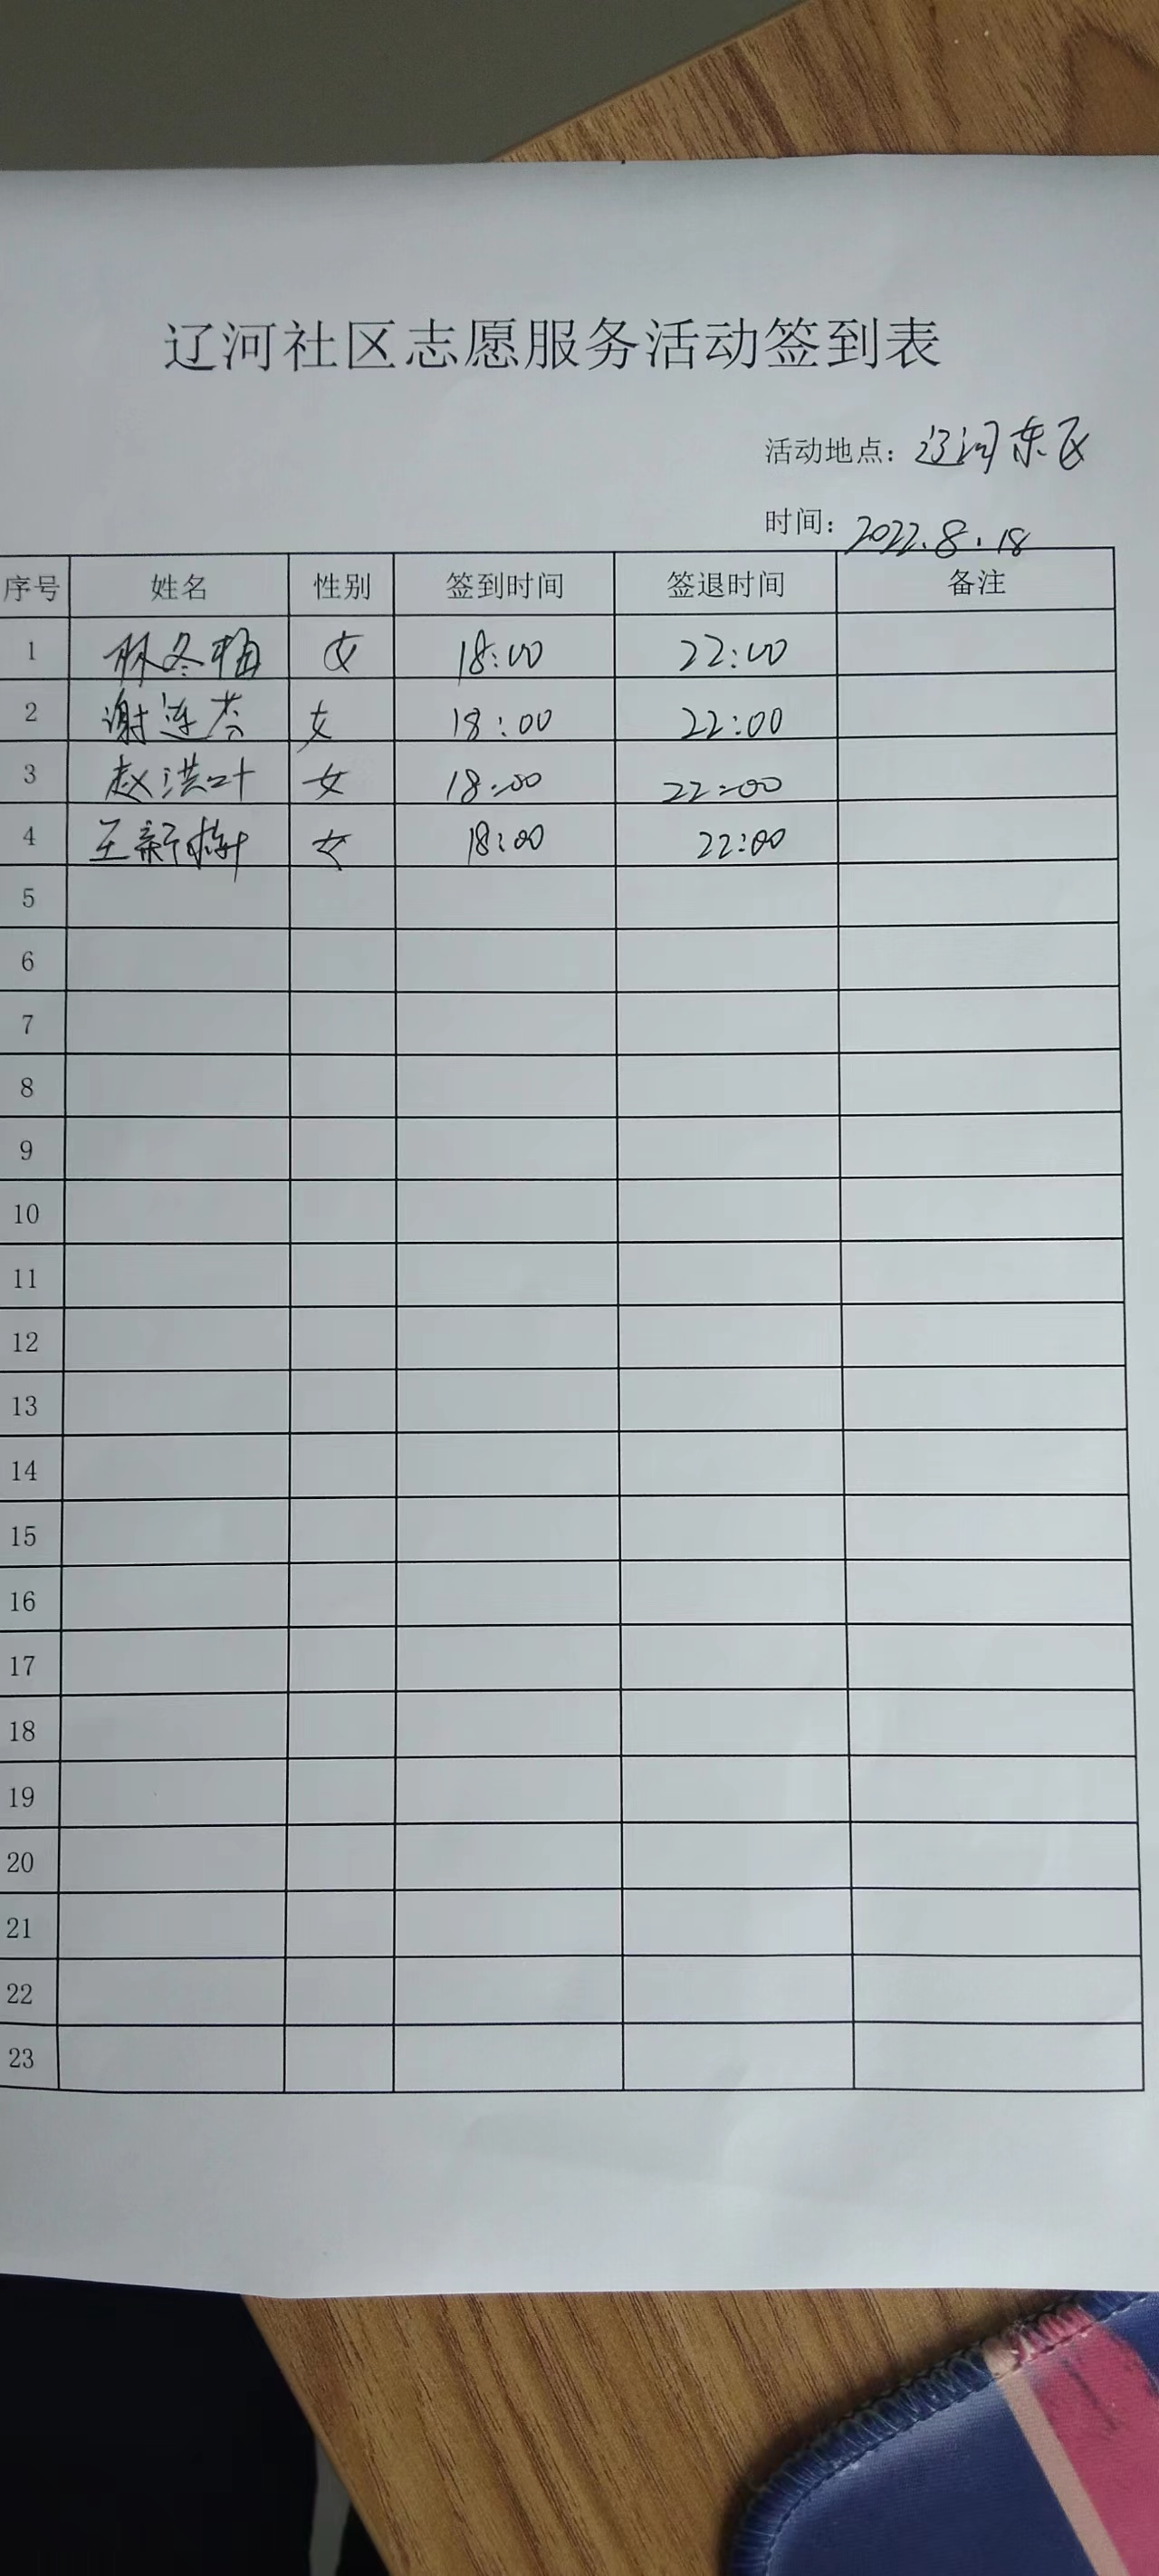 辽河社区志愿服务活动签到表
活动地点：辽河东区
时间：2022.8.18
序号 姓名 性别 签到时间 签退时间 备注
1 林冬梅 女 18:00 22:00
2 谢连芬 女 18:00 22:00
3 赵洪叶 女 18:00 22:00
4 王新 女 18:00 22:00
5
6
7
8
9
10
11
12
13
14
15
16
17
18
19
20
21
22
23